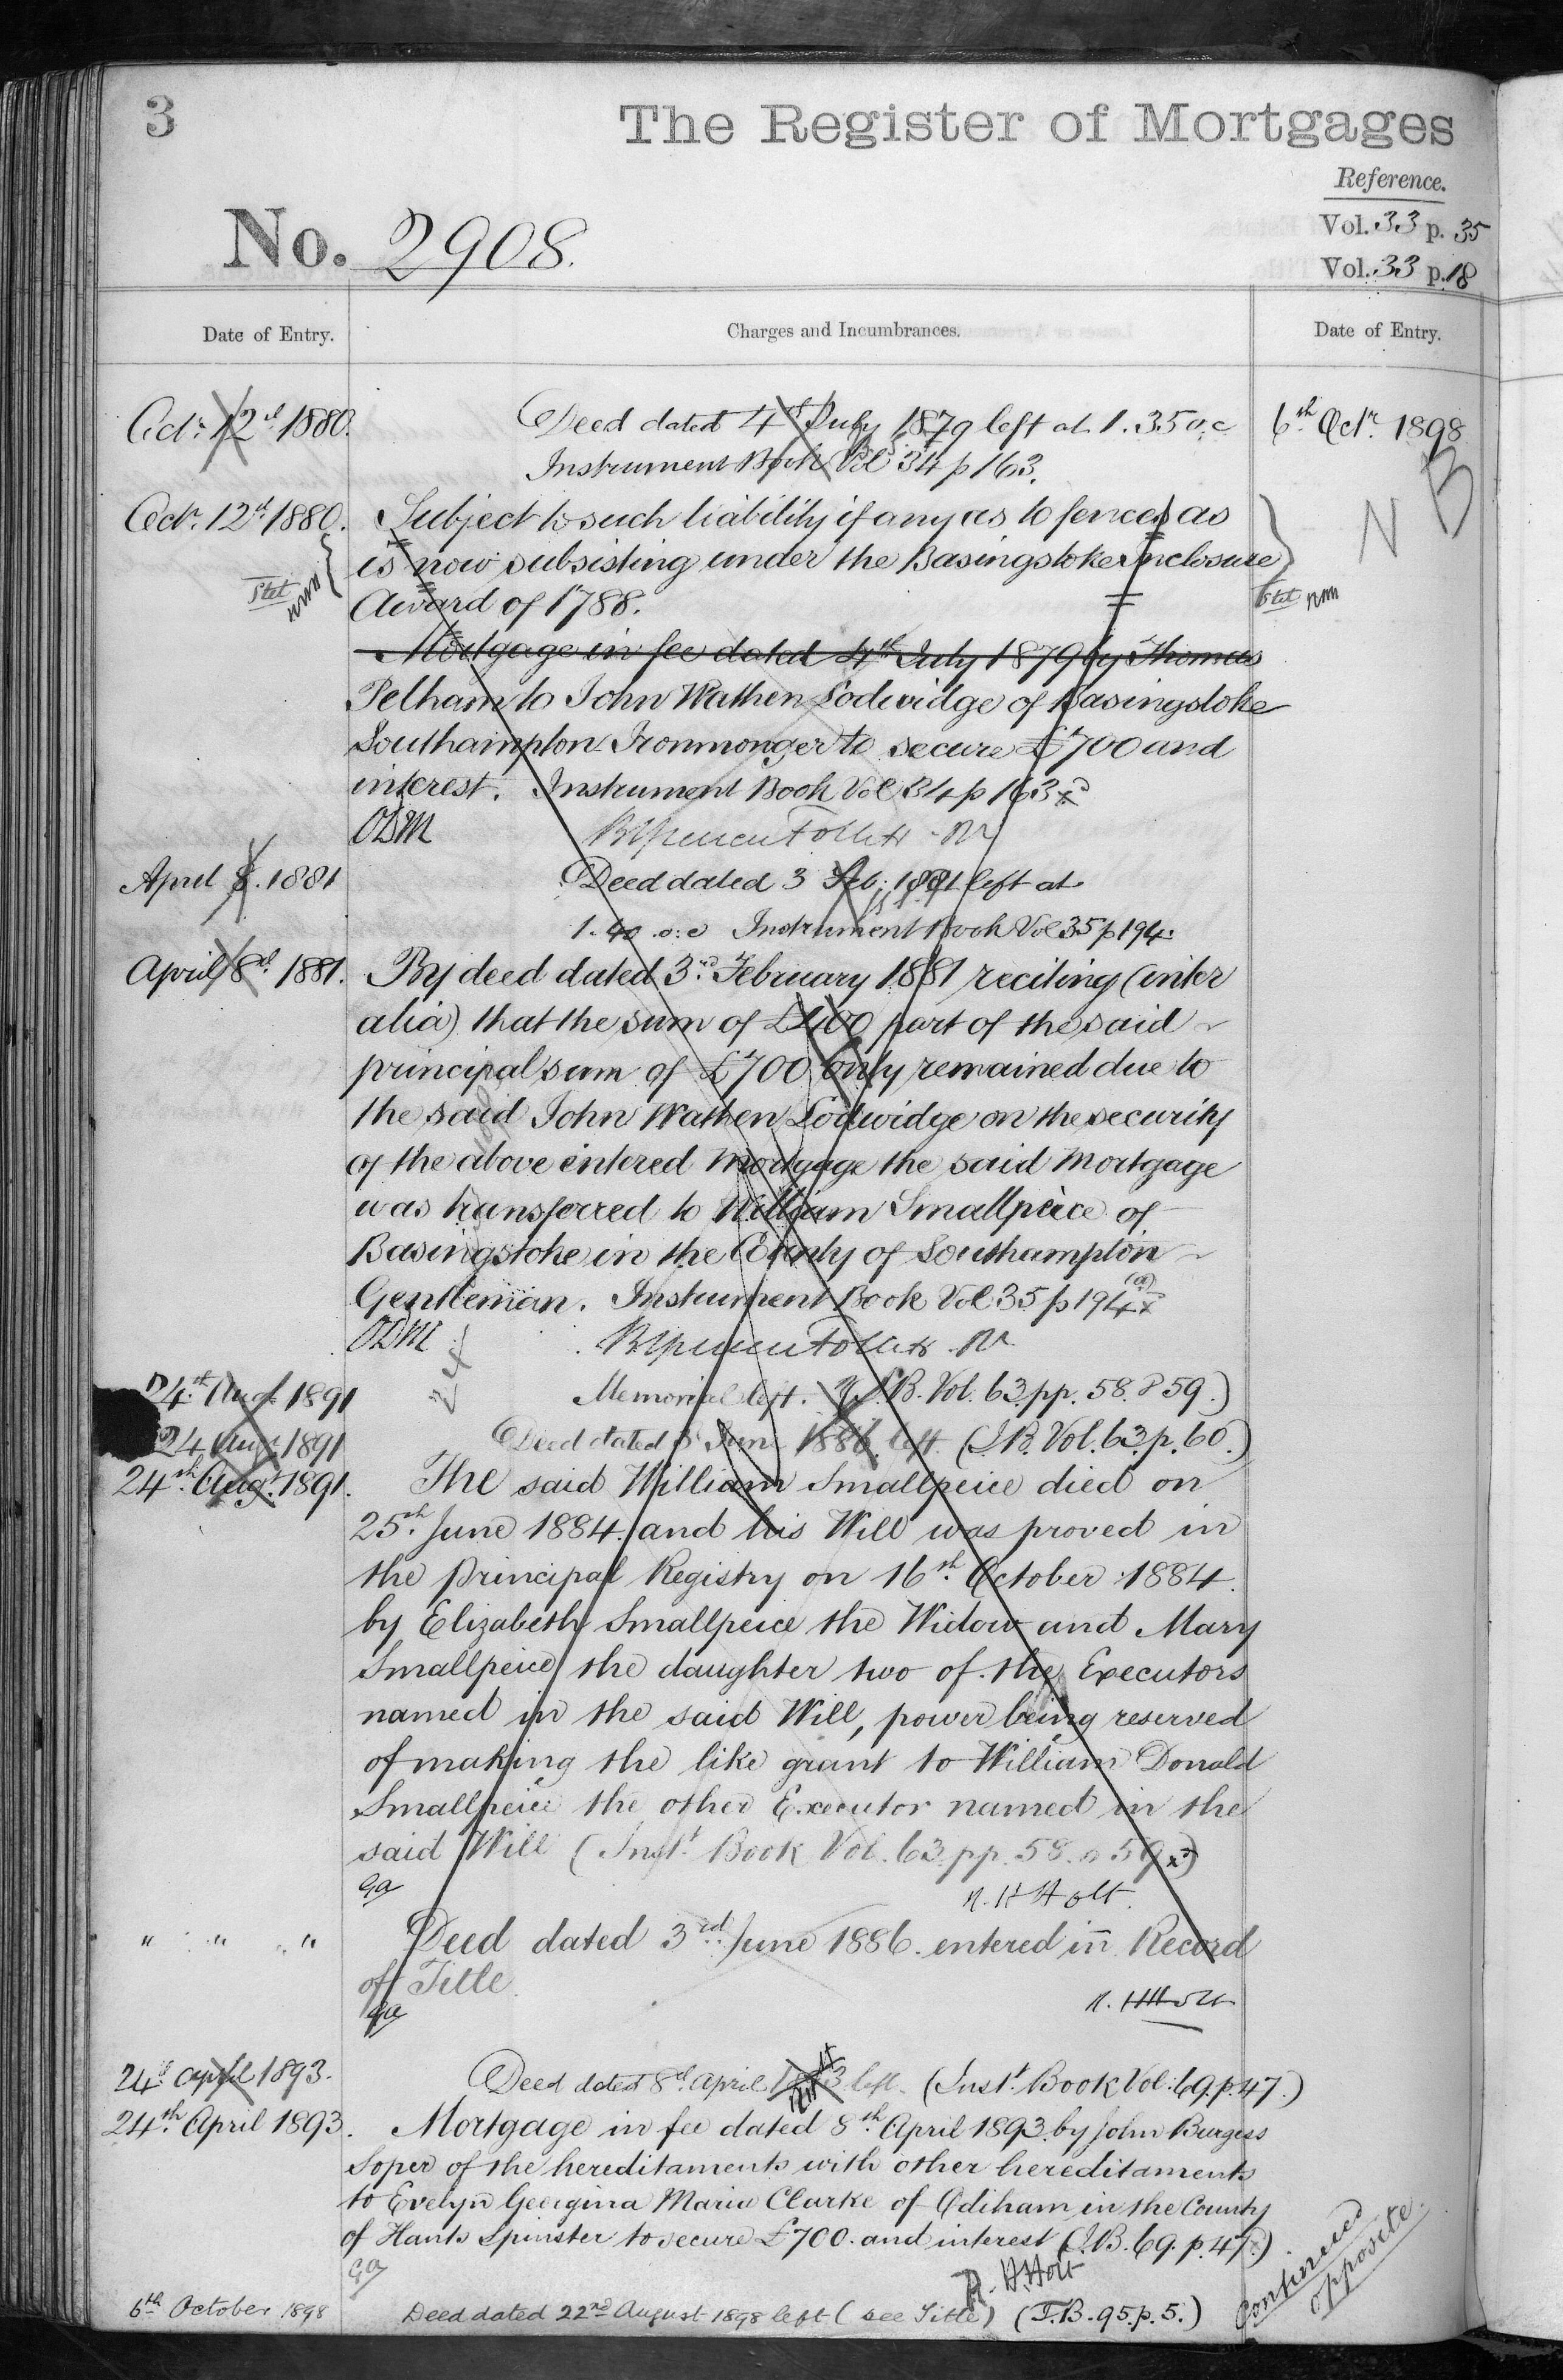 3
The Register of Mortgages
Reference.
Vol. 33 p. 35
No. 2908.
Vol. 33 p. 18
Date of Entry.
Charges and Incumbrances.
Date of Entry.
Octr. 12th 1880.
Deed dated 4th July 1879 left at 1.35 o,c
6th Octr. 1898
Instrument Book Vol 34 p 163.
N B
Octr. 12th 1880.
Subject to such liability if any as to fences as
is now subsisting under the Basingstoke Inclosure
Stet
Award of 1788.
Stet
Mortgage in fee dated 4th July 1879 by Thomas
Pelham to John Wathen Lodwidge of Basingstoke
Southampton Ironmonger to secure £700 and
interest. Instrument Book Vol 34 p 163
ODM
April 8. 1881
Deed dated 3 Feb: 1881 left at
1.40 o:c Instrument Book Vol 35 p 194.
April 8th 1881.
By deed dated 3rd February 1881 reciting (inter
alia) that the sum of £400 part of the said
principal sum of £700 only remained due to
the said John Wathen Lodwidge on the security
of the above entered Mortgage the said Mortgage
was transferred to William Smallpeice of
Basingstoke in the County of Southampton
Gentleman. Instrument Book Vol 35 p 194
ODM
24th Augt. 1891
Memorial left. I.B. Vol. 63. pp. 58. & 59.)
24 Augt. 1891
Deed dated 3 June 1886 left. (I.B. Vol. 63. p. 60.)
24th Augt. 1891.
The said William Smallpeice died on
25th June 1884. and his Will was proved in
the Principal Registry on 16th October 1884.
by Elizabeth Smallpeice the Widow and Mary
Smallpeice the daughter two of the Executors
named in the said Will, power being reserved
of making the like grant to William Donald
Smallpeice the other Executor named in the
said Will (Inst. Book Vol. 63 pp. 58. & 59)
Ga
R. H Holt.
" " "
Deed dated 3rd June 1886. entered in Record
of Title.
Ga
R. H Holt
24th April 1893.
Deed dated 8th April 1893 left. (Inst. Book Vol: 69. p. 47.)
24th April 1893.
Mortgage in fee dated 8th April 1893 by John Burgess
Soper of the hereditaments with other hereditaments
to Evelyn Georgina Maria Clarke of Odiham in the County
of Hants Spinster to secure £700. and interest (I.B. 69. p. 47.)
Ga
R. H. Holt
Continued
opposite.
6th October 1898
Deed dated 22nd August 1898 left (see Title) (I.B. 95. p. 5.)